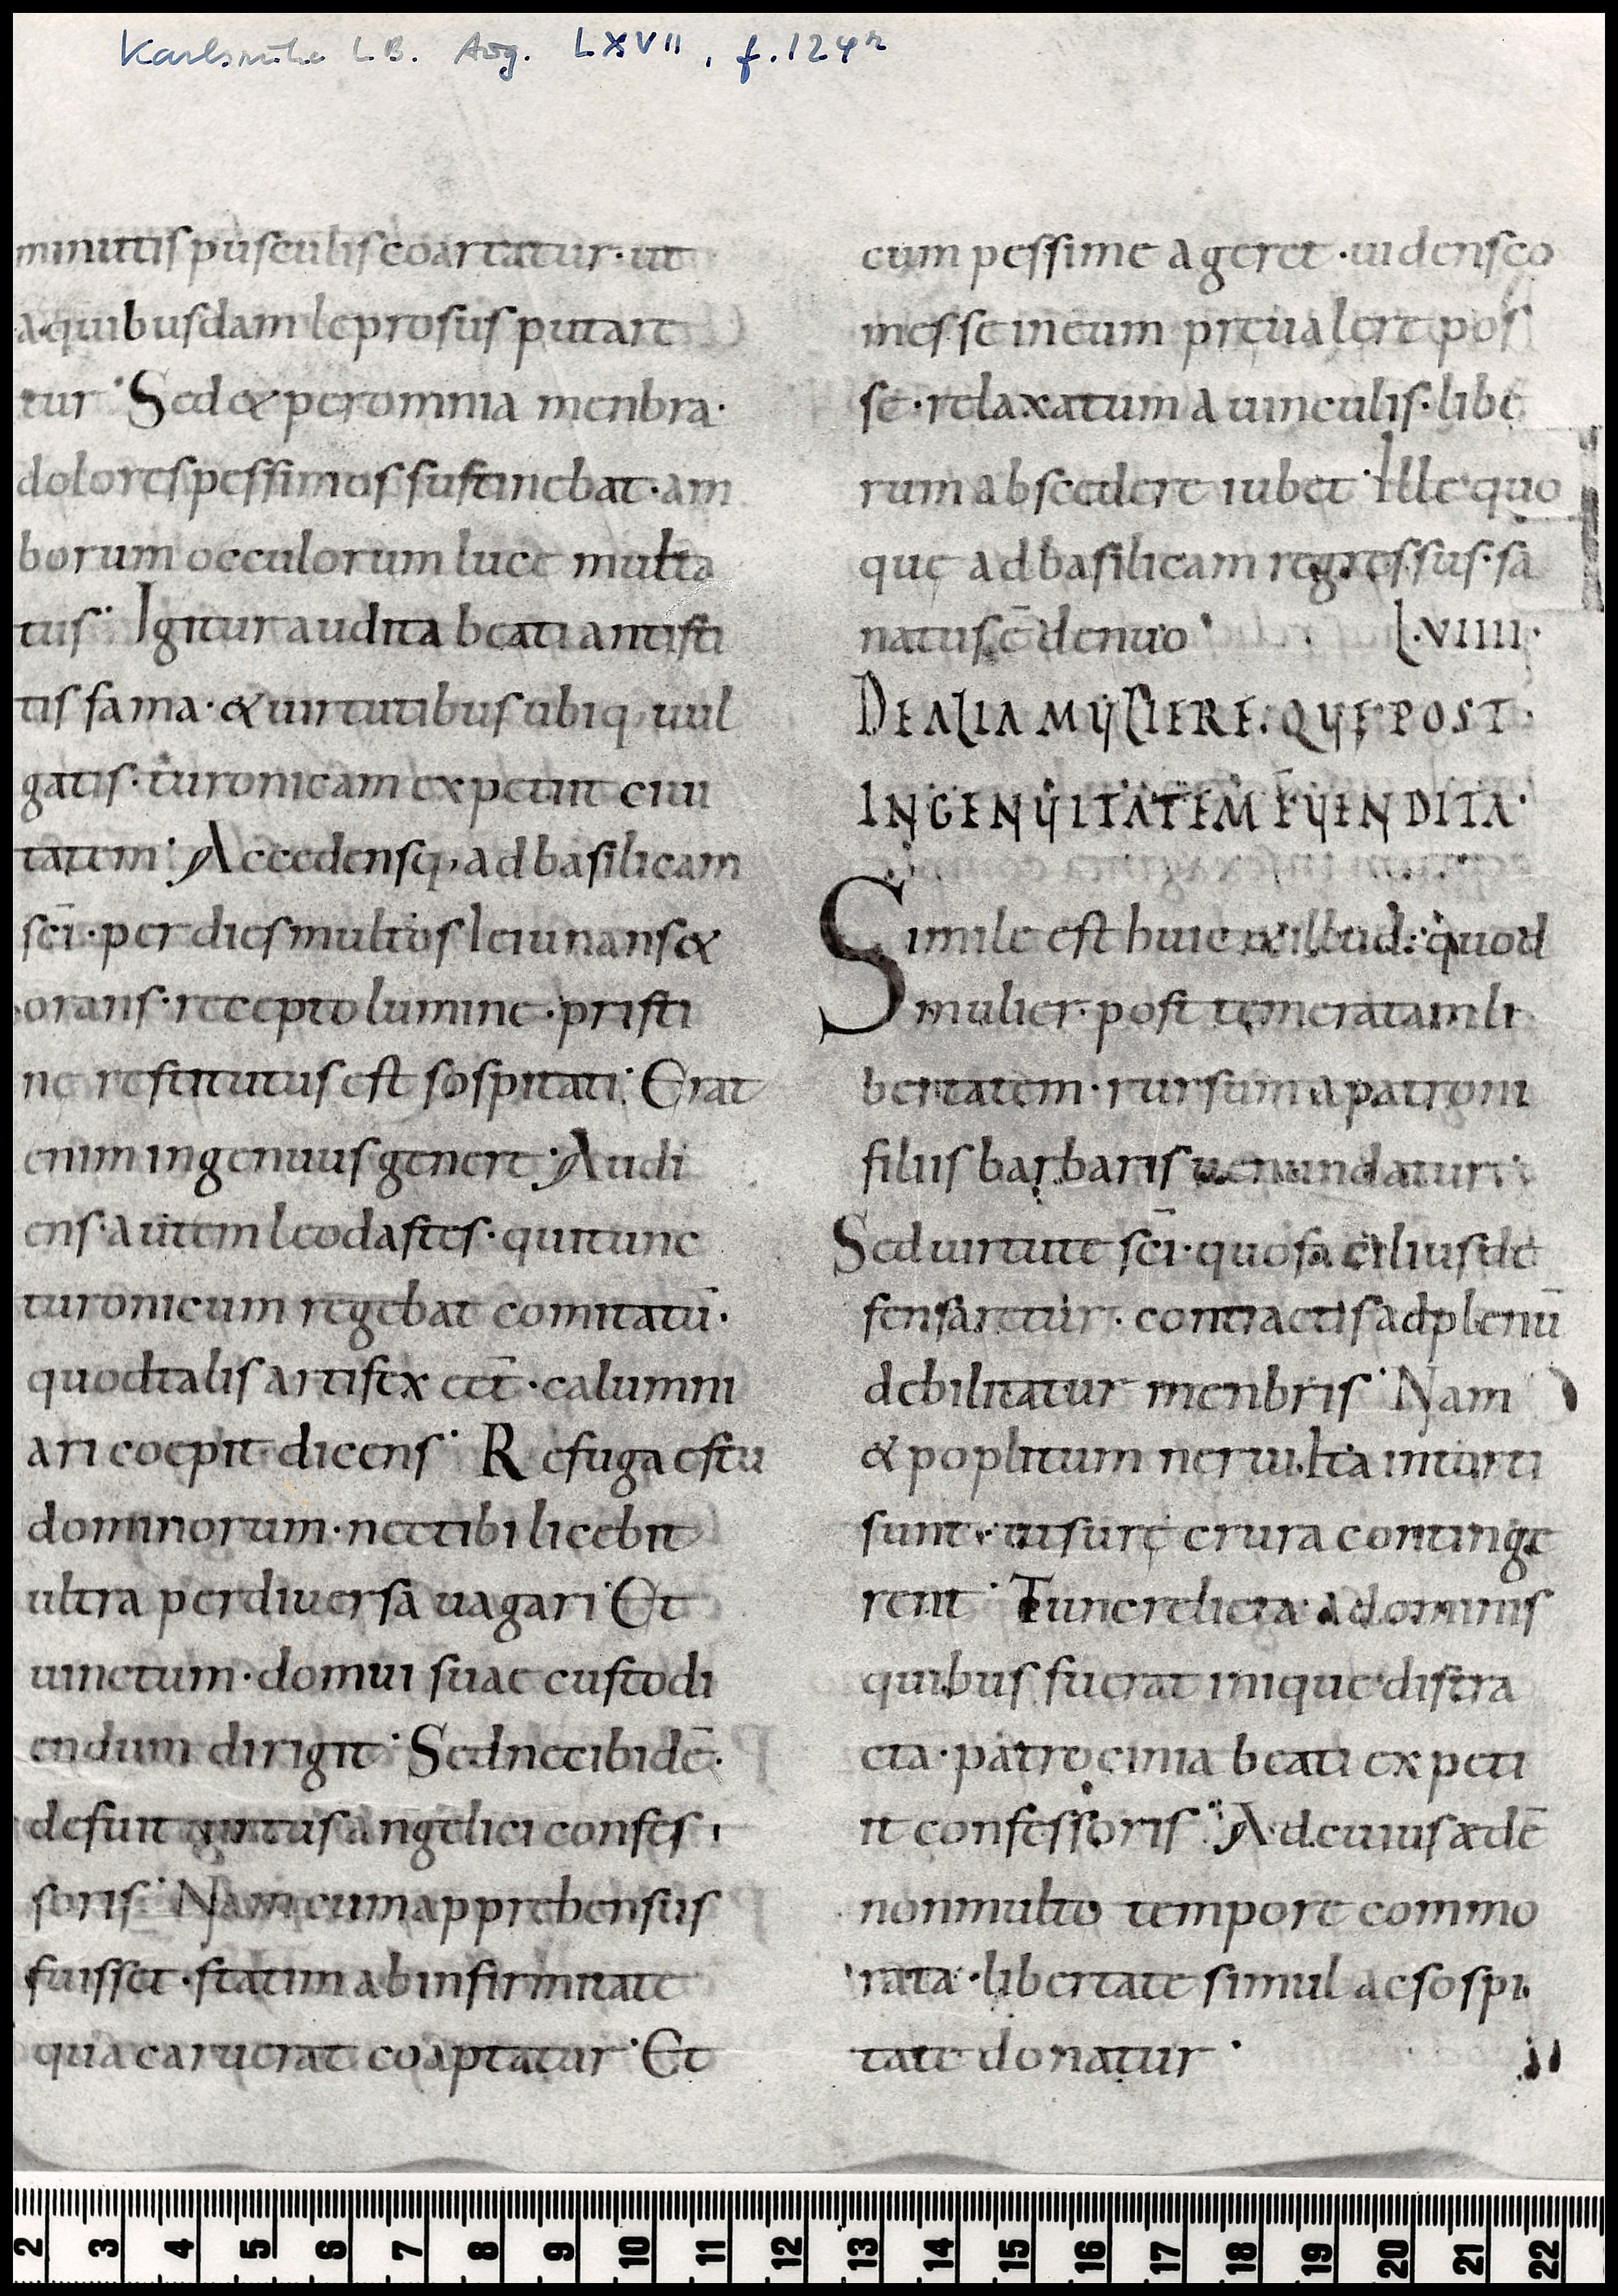 Karlsruhe L.B. Aug. LXVII, f. 124r
minutis pusculis coartatur · ut
a quibusdam leprosus putare
tur · Sed & per omnia menbra ·
dolores pessimos sustinebat · am
borum occulorum luce multa
tus · Igitur audita beati antisti
tis fama · & uirtutibus ubiq; uul
gatis · turonicam expetiit ciui
tatem · Accedensq; ad basilicam
sc̄i · per dies multos Ieiunans &
orans · recepto lumine · pristi
ne restitutus est sospitati · Erat
enim ingenuus genere · Audi
ens · autem leodastes · qui tunc
turonicum regebat comitatū ·
quod talis artifex eēt · calumni
ari coepit dicens · Refuga es tu
dominorum · nec tibi licebit
ultra per diuersa uagari · Et
uinctum · domui suae custodi
endum dirigit · Sed nec ibidē ·
defuit uirtus angelici confes
soris · Nam cum apprehensus
fuisset · statim ab infirmitate
qua caruerat coaptatur · Et
cum pessime ageret · uidens co
mes se in eum pręualere pos
se · relaxatum a uinculis · libe
rum abscedere iubet · Ille quo
que ad basilicam regressus · sa
natus ē denuo · L·VIIII·
DE ALIA MULIERE · QUE POST ·
INGENUITATEM F̄ UENDITA ·
Simile est huic & illud : quod
mulier · post temeratam li
bertatem · rursum a patroni
filiis barbaris uenundatur :
Sed uirtute sc̄i · quo facilius de
fensaretur · contractis ad plenū
debilitatur menbris · Nam
& poplitum nerui · Ita intorti
sunt · ut surę crura continge
rent · Tunc relicta a dominis
quibus fuerat inique distra
cta · patrocinia beati expeti
it confessoris · Ad cuius ędē
non multo tempore commo
rata · libertate simul ac sospi
tate donatur ·
2 3 4 5 6 7 8 9 10 11 12 13 14 15 16 17 18 19 20 21 22